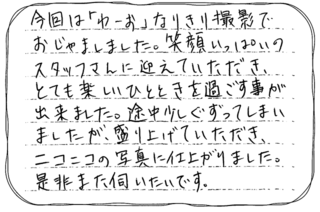 今回は「わーお」なりきり撮影で
おじゃましました。笑顔いっぱいの
スタッフさんに迎えていただき、
とても楽しいひとときを過ごす事が
出来ました。途中少しぐずってしまい
ましたが、盛り上げていただき、
ニコニコの写真に仕上がりました。
是非また伺いたいです。